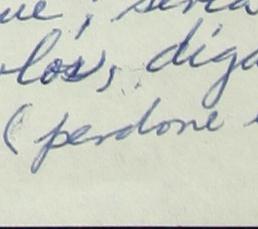 ue, seria
los, diga
(perdone